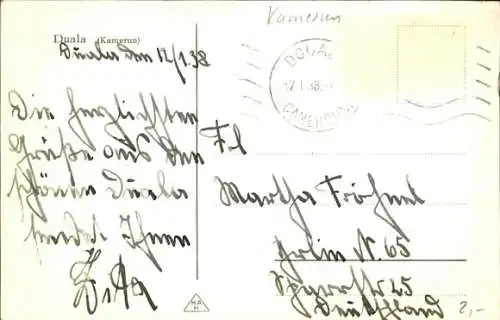 Kamerun
Duala (Kamerun)
Duala den 12/1.38
DOUALA
12.1.38
CAMEROUN
Die herzlichsten
Grüße aus dem
schönen Duala
sendet Ihnen
Frl
Martha Fröhnel
Berlin N. 65
Sparrstr 25
Deutschland
2,-